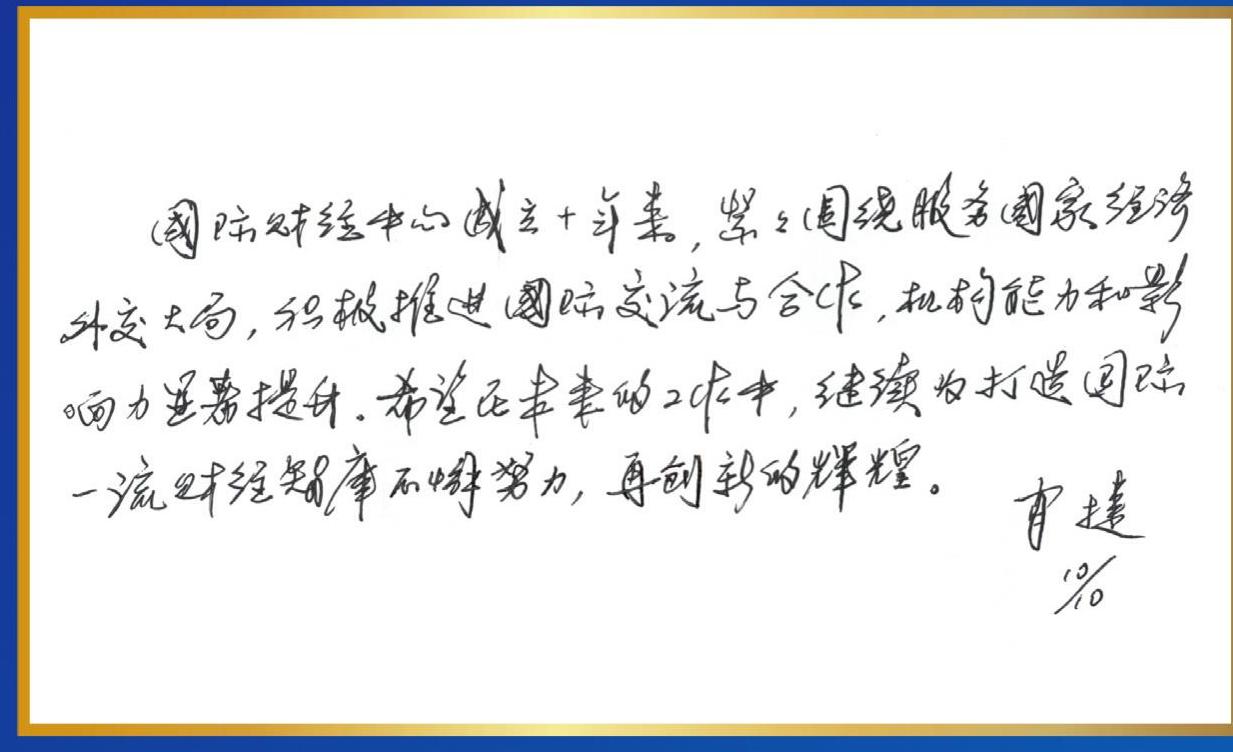 國际财经中心成立十年来,紧紧围绕服务國家经济
外交大局,积极推进國际交流与合作,机构能力和影
响力显著提升。希望在未来的工作中,继续为打造国际
一流财经智库不懈努力,再创新的辉煌。
肖捷
10/10